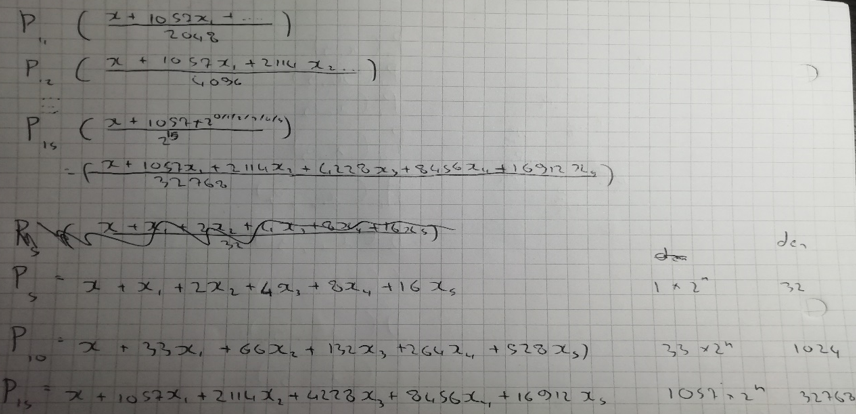 P₁₁ ( x + 1057x₁ + ... / 2048 )
P₁₂ ( x + 1057x₁ + 2114x₂ ... / 4096 )
P₁₅ ( x + 1057 + 2^0/1/2/3/4/ / 2^15 )
= ( x + 1057x₁ + 2114x₂ + 4228x₃ + 8456x₄ + 16912x₅ / 32768 )
P₅ ( x + x₁ + 2x₂ + 4x₃ + 8x₄ + 16x₅ / 32 )
den
P₅ = x + x₁ + 2x₂ + 4x₃ + 8x₄ + 16x₅ 1 × 2ⁿ 32
P₁₀ = x + 33x₁ + 66x₂ + 132x₃ + 264x₄ + 528x₅) 33 × 2ⁿ 1024
P₁₅ = x + 1057x₁ + 2114x₂ + 4228x₃ + 8456x₄ + 16912x₅ 1057 × 2ⁿ 32768